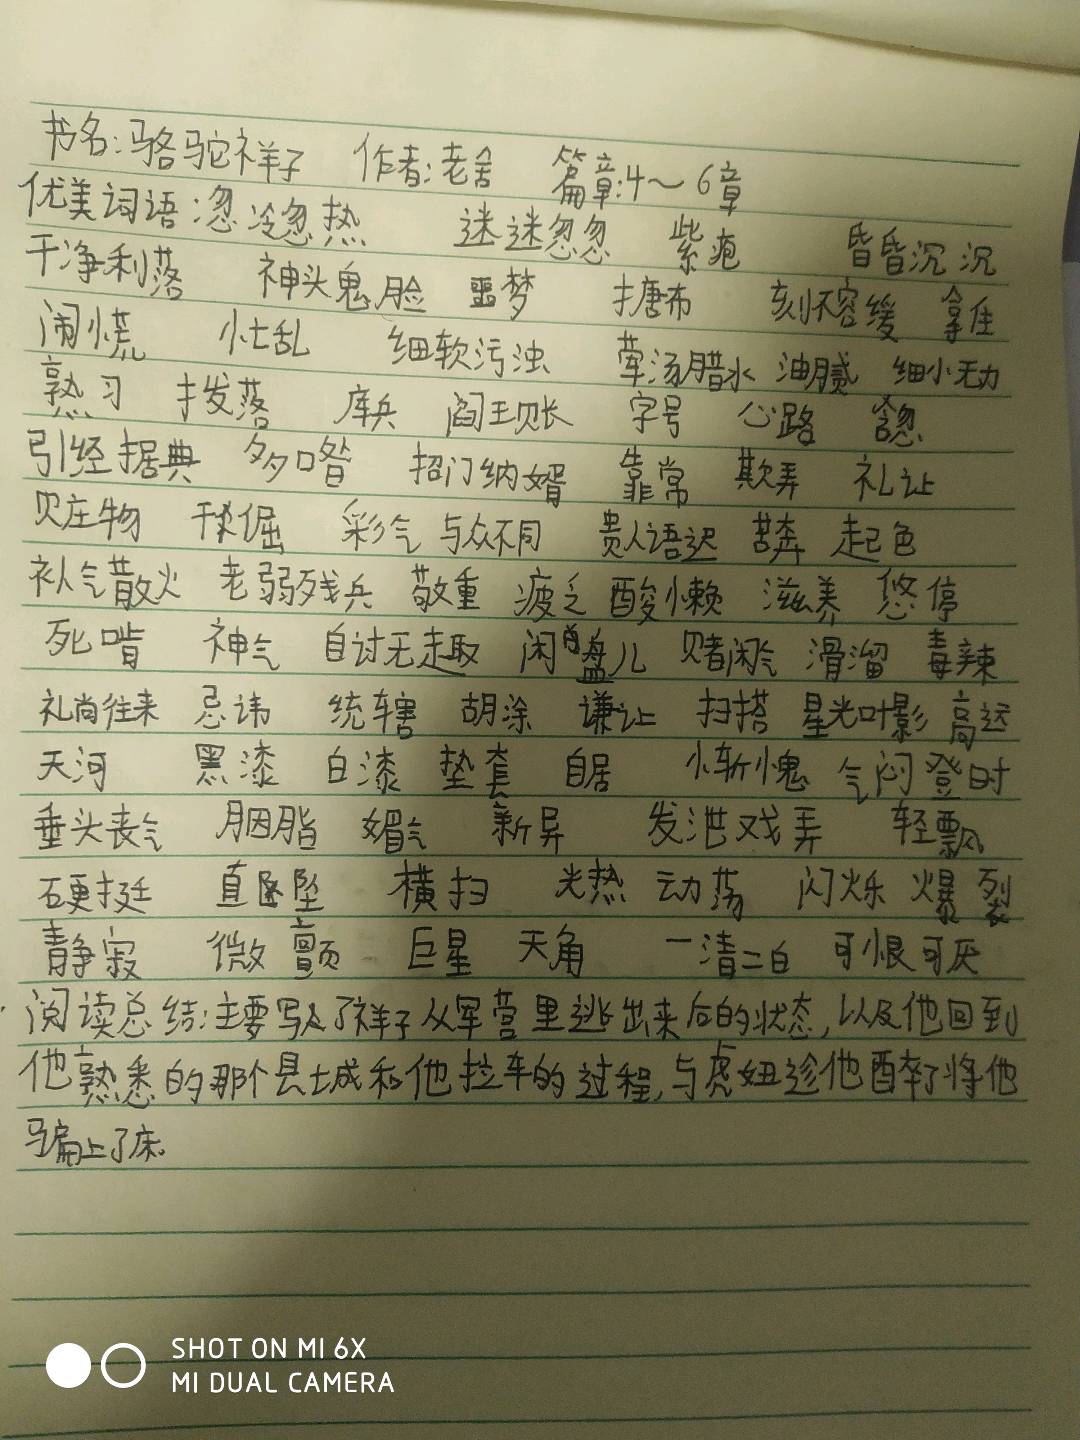 书名:骆驼祥子 作者:老舍 篇章:4~6章
优美词语:忽冷忽热 迷迷忽忽 紫疱 昏昏沉沉
干净利落 神头鬼脸 噩梦 搪布 刻不容缓 拿住
闹慌 忙乱 细软污浊 荤汤腊水 油腻 细小无力
熟习 拨落 库兵 阎王账 字号 心路 贪忽
引经据典 多咱 招门纳婿 靠常 欺弄 礼让
贝庄物 倔 彩气 与众不同 贵人语迟 苦奔 起色
补气散火 老弱残兵 敬重 疲乏 酸懒 滋养 悠停
死啃 神气 自讨无趣 闲盘儿 赌闲气 滑溜 毒辣
礼尚往来 忌讳 统辖 胡涂 谦让 扫搭 星光叶影 高远
天河 黑漆 白漆 垫套 自居 惭愧 气闷 登时
垂头丧气 胭脂 媚气 新异 发泄戏弄 轻飘
硬挺 直坠 横扫 光热 动荡 闪烁 爆裂
静寂 微颤 巨星 天角 一清二白 可恨可厌
阅读总结:主要写了祥子从军营里逃出来后的状态,以及他回到
他熟悉的那个县城和他拉车的过程,与虎妞趁他醉了将他
骗上了床。
SHOT ON MI 6X
MI DUAL CAMERA